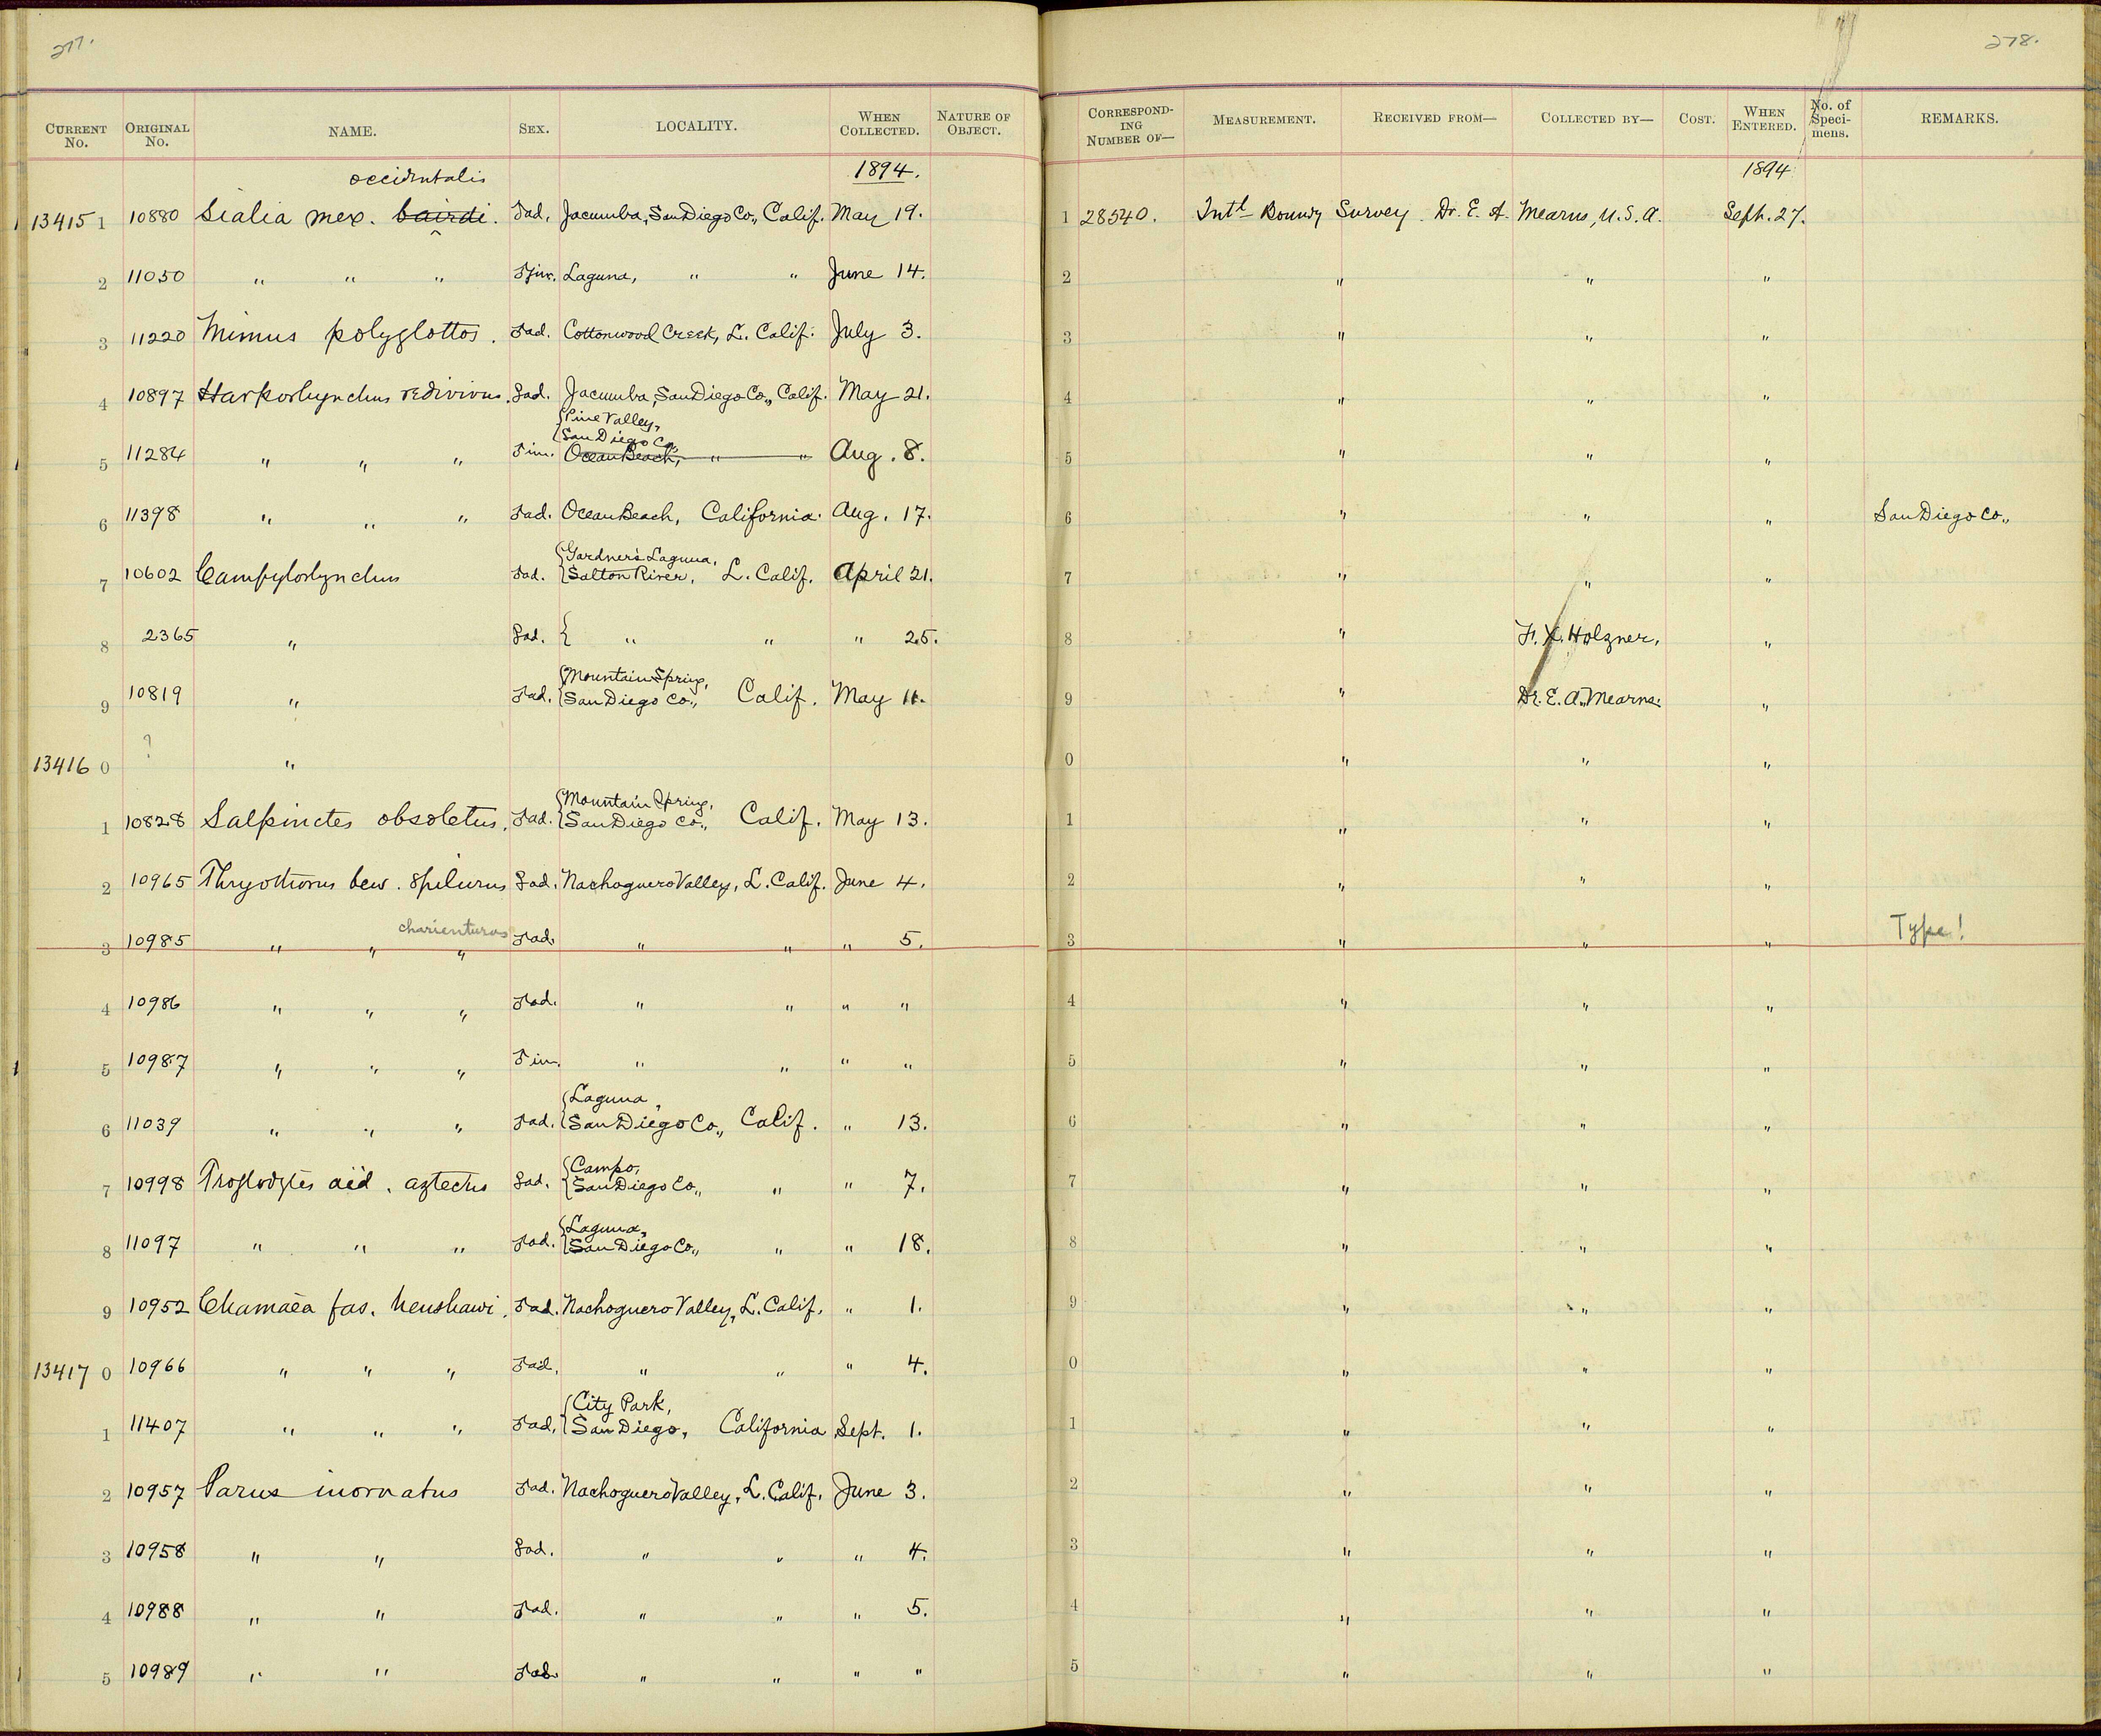 277.
278.
CURRENT No. ORIGINAL No. NAME. SEX. LOCALITY. WHEN COLLECTED. NATURE OF OBJECT. CORRESPONDING NUMBER OF— MEASUREMENT. RECEIVED FROM— COLLECTED BY— COST. WHEN ENTERED. No. of Specimens. REMARKS.
occidentalis 1894. 1894
13415 1 10880 Sialia mex. bairdi. ad. Jacumba, San Diego Co., Calif. May 19. 1 28540. Intl Boundy Survey. Dr. E. A. Mearns, U.S.A. Sept. 27.
2 11050 " " " juv. Laguna, " " June 14. 2 " " "
3 11220 Mimus polyglottos. ad. Cottonwood Creek, L. Calif. July 3. 3 " " "
4 10897 Harporhynchus redivivus. ad. Jacumba, San Diego Co., Calif. May 21. 4 " " "
{Pine Valley,
{San Diego Co.,
5 11284 " " " im. Ocean Beach, " " Aug. 8. 5 " " "
6 11398 " " " ad. Ocean Beach, California. Aug. 17. 6 " " " San Diego Co.,
{Gardner's Laguna,
7 10602 Campylorhynchus ad. {Salton River, L. Calif. April 21. 7 " " "
8 2365 " ad. { " " " 25. 8 " F. X. Holzner, "
{Mountain Spring,
9 10819 " ad. {San Diego Co., Calif. May 11. 9 " Dr. E. A. Mearns. "
13416 0 ? " 0 " " "
{Mountain Spring,
1 10828 Salpinctes obsoletus. ad. {San Diego Co., Calif. May 13. 1 " " "
2 10965 Thryothorus bew. spilurus ad. Nachoguero Valley, L. Calif. June 4. 2 " " "
charienturus
3 10985 " " " ad. " " " 5. 3 " " " Type!
4 10986 " " " ad. " " " " 4 " " "
5 10987 " " " im. " " " " 5 " " "
{Laguna,
6 11039 " " " ad. {San Diego Co., Calif. " 13. 6 " " "
{Campo,
7 10998 Troglodytes aëd. aztecus ad. {San Diego Co., " " 7. 7 " " "
{Laguna,
8 11097 " " " ad. {San Diego Co., " " 18. 8 " " "
9 10952 Chamaea fas. henshawi. ad. Nachoguero Valley, L. Calif. " 1. 9 " " "
13417 0 10966 " " " ad. " " " 4. 0 " " "
{City Park,
1 11407 " " " ad. {San Diego, California Sept. 1. 1 " " "
2 10957 Parus inornatus ad. Nachoguero Valley, L. Calif. June 3. 2 " " "
3 10958 " " ad. " " " 4. 3 " " "
4 10988 " " ad. " " " 5. 4 " " "
5 10989 " " ad. " " " " 5 " " "